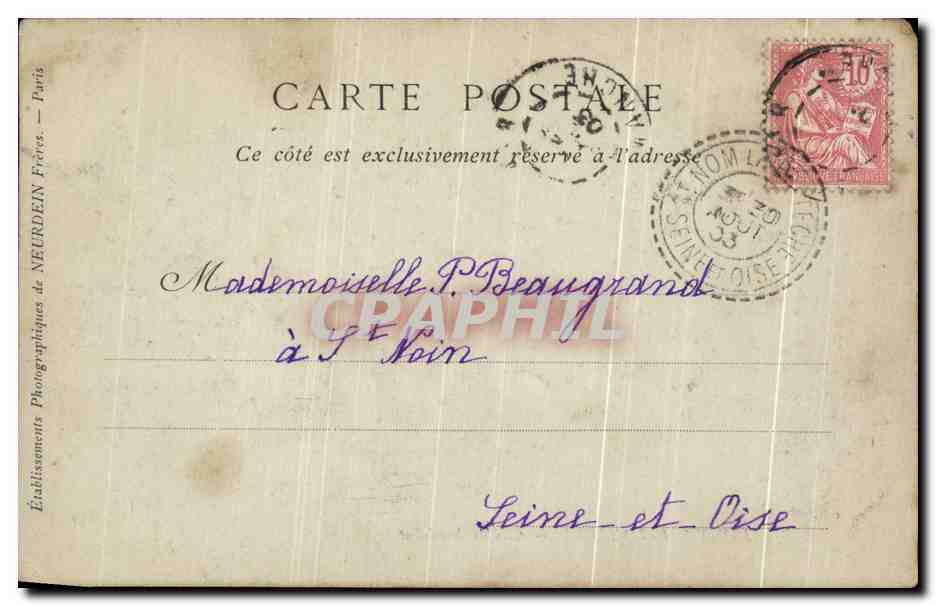 CARTE POSTALE
Ce côté est exclusivement réservé à l'adresse
Mademoiselle P. Beaugrand
à St Noin
Seine-et-Oise
Établissements Photographiques de NEURDEIN Frères. — Paris
10
FRANÇAISE
MANCHE
03
ST NOM LA
SEINE ET OISE
30
AOUT
03
CRAPHIL